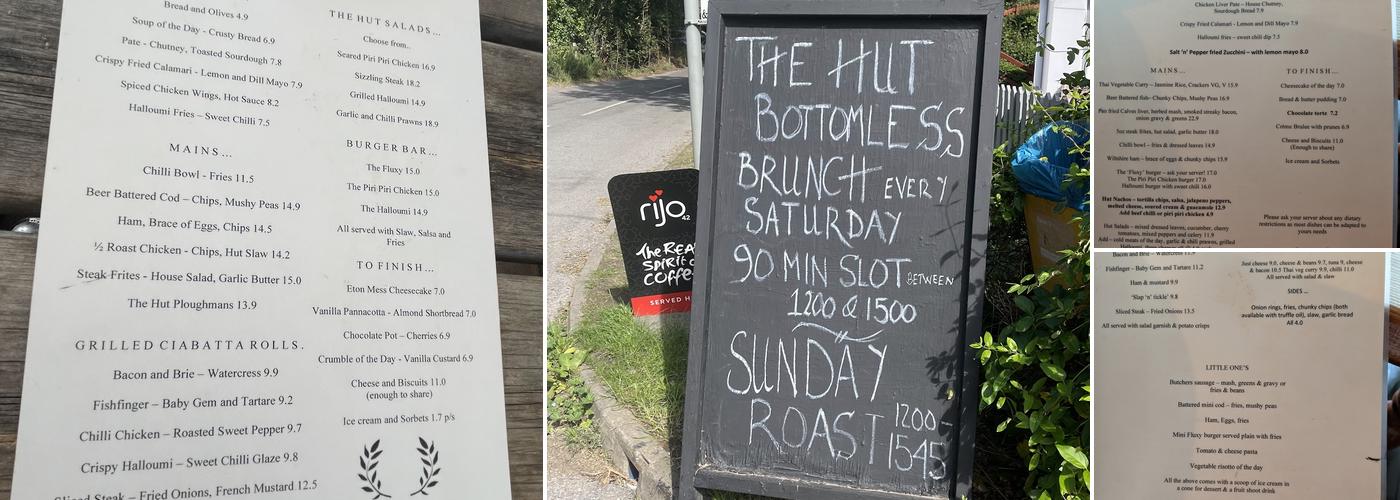 Bread and Olives 4.9
Soup of the Day - Crusty Bread 6.9
Pate - Chutney, Toasted Sourdough 7.8
Crispy Fried Calamari - Lemon and Dill Mayo 7.9
Spiced Chicken Wings, Hot Sauce 8.2
Halloumi Fries – Sweet Chilli 7.5
MAINS...
Chilli Bowl - Fries 11.5
Beer Battered Cod – Chips, Mushy Peas 14.9
Ham, Brace of Eggs, Chips 14.5
½ Roast Chicken - Chips, Hut Slaw 14.2
Steak Frites - House Salad, Garlic Butter 15.0
The Hut Ploughmans 13.9
GRILLED CIABATTA ROLLS.
Bacon and Brie – Watercress 9.9
Fishfinger – Baby Gem and Tartare 9.2
Chilli Chicken – Roasted Sweet Pepper 9.7
Crispy Halloumi – Sweet Chilli Glaze 9.8
Steak – Fried Onions, French Mustard 12.5
THE HUT SALADS...
Choose from..
Seared Piri Piri Chicken 16.9
Sizzling Steak 18.2
Grilled Halloumi 14.9
Garlic and Chilli Prawns 18.9
BURGER BAR...
The Fluxy 15.0
The Piri Piri Chicken 15.0
The Halloumi 14.9
All served with Slaw, Salsa and
Fries
TO FINISH...
Eton Mess Cheesecake 7.0
Vanilla Pannacotta - Almond Shortbread 7.0
Chocolate Pot – Cherries 6.9
Crumble of the Day - Vanilla Custard 6.9
Cheese and Biscuits 11.0
(enough to share)
Ice cream and Sorbets 1.7 p/s
THE HUT
BOTTOMLESS
BRUNCH EVERY
SATURDAY
90 MIN SLOT BETWEEN
1200 & 1500
SUNDAY
ROAST 1200-
1545
rijo 42
The REA
SPIRIT O
COFFE
SERVED H
Chicken Liver Pate – House Chutney,
Sourdough Bread 7.9
Crispy Fried Calamari - Lemon and Dill Mayo 7.9
Halloumi fries – sweet chili dip 7.5
Salt 'n' Pepper fried Zucchini – with lemon mayo 8.0
MAINS...
Thai Vegetable Curry – Jasmine Rice, Crackers VG, V 15.9
Beer Battered fish- Chunky Chips, Mushy Peas 16.9
Pan fried Calves liver, herbed mash, smoked streaky bacon,
onion gravy & greens 22.9
5oz steak frites, hut salad, garlic butter 18.0
Chilli bowl – fries & dressed leaves 14.9
Wiltshire ham – brace of eggs & chunky chips 15.9
The 'Fluxy' burger – ask your server! 17.0
The Piri Piri Chicken burger 17.0
Halloumi burger with sweet chilli 16.0
Hut Nachos – tortilla chips, salsa, jalapeno peppers,
melted cheese, soured cream & guacamole 12.9
Add beef chilli or piri piri chicken 4.9
Hut Salads – mixed dressed leaves, cucumber, cherry
tomatoes, mixed peppers and celery 11.9
Add – cold meats of the day, garlic & chili prawns, grilled
TO FINISH...
Cheesecake of the day 7.0
Bread & butter pudding 7.0
Chocolate torte 7.2
Crème Brulee with prunes 6.9
Cheese and Biscuits 11.0
(Enough to share)
Ice cream and Sorbets
Please ask your server about any dietary
restrictions as most dishes can be adapted to
yours needs
Fishfinger - Baby Gem and Tartare 11.2
Ham & mustard 9.9
'Slap 'n' tickle' 9.8
Sliced Steak – Fried Onions 13.5
All served with salad garnish & potato crisps
Just cheese 9.0, cheese & beans 9.7, tuna 9, cheese
& bacon 10.5 Thai veg curry 9.9, chilli 11.0
All served with salad & slaw
SIDES ...
Onion rings, fries, chunky chips (both
available with truffle oil), slaw, garlic bread
All 4.0
LITTLE ONE'S
Butchers sausage – mash, greens & gravy or
fries & beans
Battered mini cod – fries, mushy peas
Ham, Eggs, fries
Mini Fluxy burger served plain with fries
Tomato & cheese pasta
Vegetable risotto of the day
All the above comes with a scoop of ice cream in
a cone for dessert & a fruit shoot drink